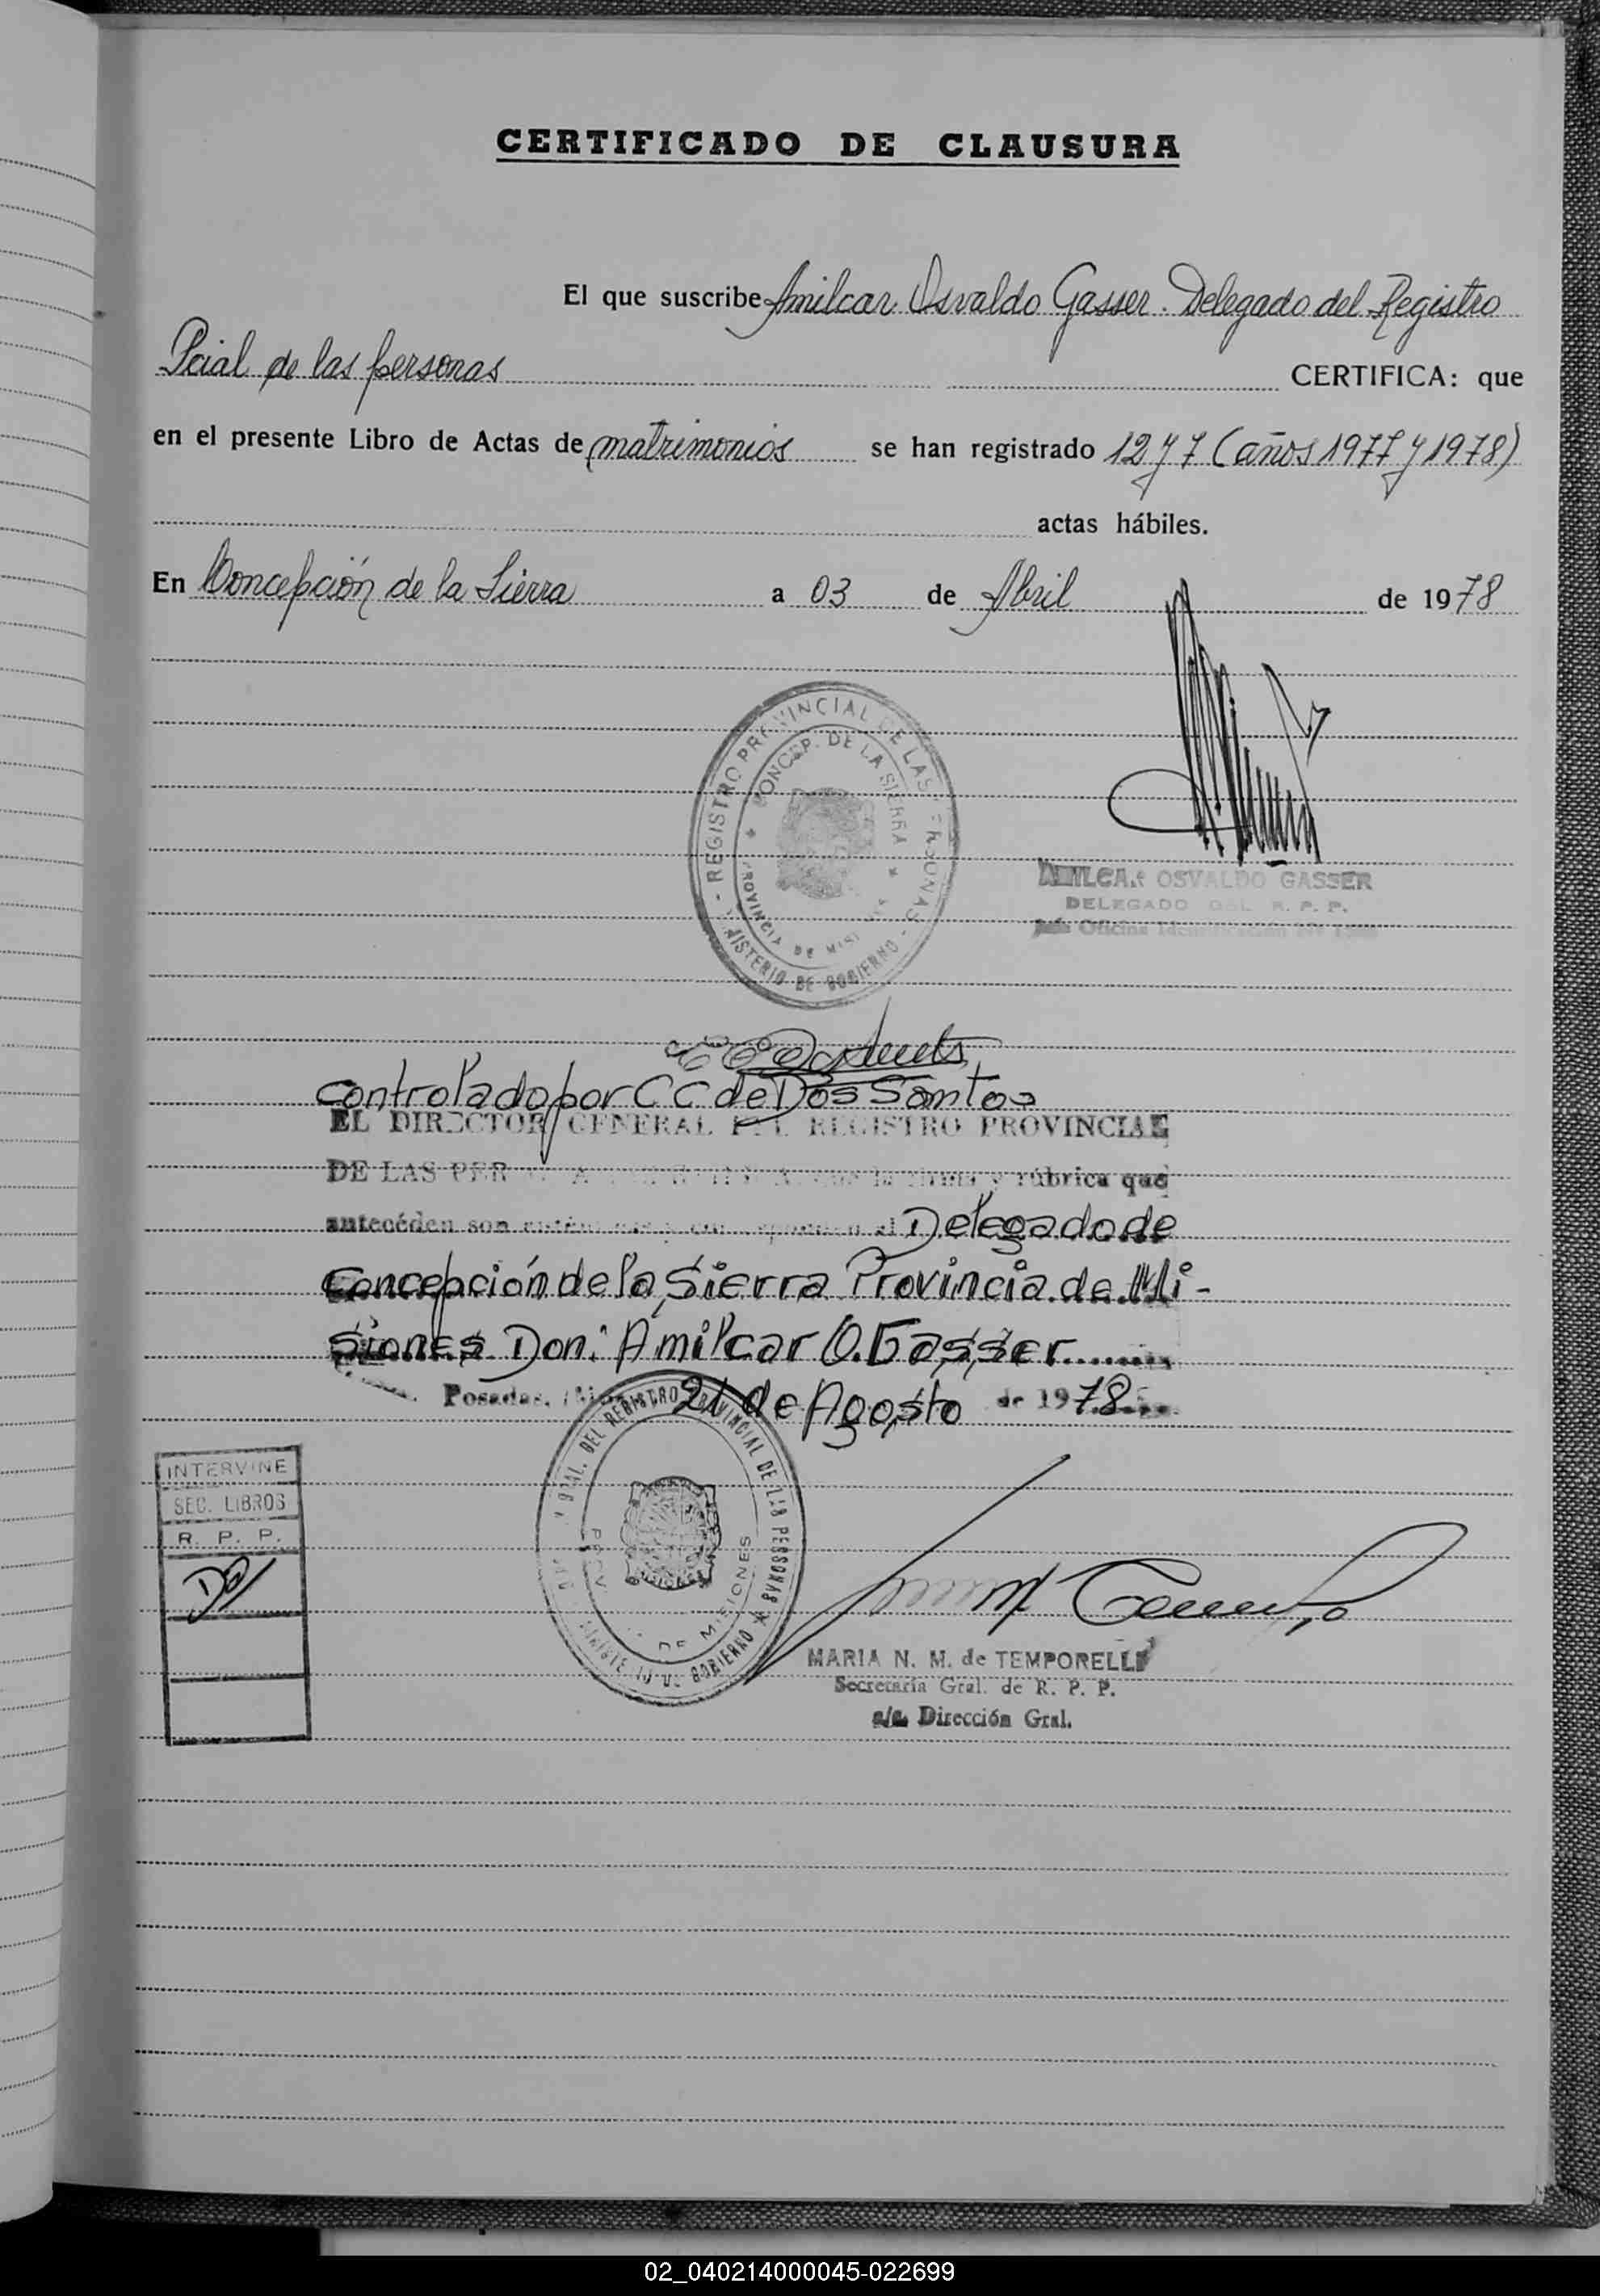 CERTIFICADO DE CLAUSURA
El que suscribe Amilcar Osvaldo Gasser. Delegado del Registro
Pcial de las personas CERTIFICA: que
en el presente Libro de Actas de matrimonios se han registrado 12 y 7 (años 1977 y 1978)
actas hábiles.
En Concepción de la Sierra a 03 de Abril de 1978
REGISTRO PROVINCIAL DE LAS PERSONAS
CONCEP. DE LA SIERRA
PROVINCIA DE
DE GOBIERNO
AMILCAR OSVALDO GASSER
DELEGADO DEL R. P. P.
Controlado por C C de Dos Santos
EL DIRECTOR GENERAL DEL REGISTRO PROVINCIAL
DE LAS firma y rúbrica que
antecéden son al Delegado de
Concepción de la Sierra Provincia de Mi-
siones Don: Amilcar O. Gasser
Posadas, 21 de Agosto de 1978
DEL REGISTRO PROVINCIAL DE LAS PERSONAS
DE MISIONES
GOBIERNO
INTERVINE
SEC. LIBROS
R. P. P.
MARIA N. M. de TEMPORELLI
Secretaria Gral. de R. P. P.
a/c. Dirección Gral.
02_040214000045-022699